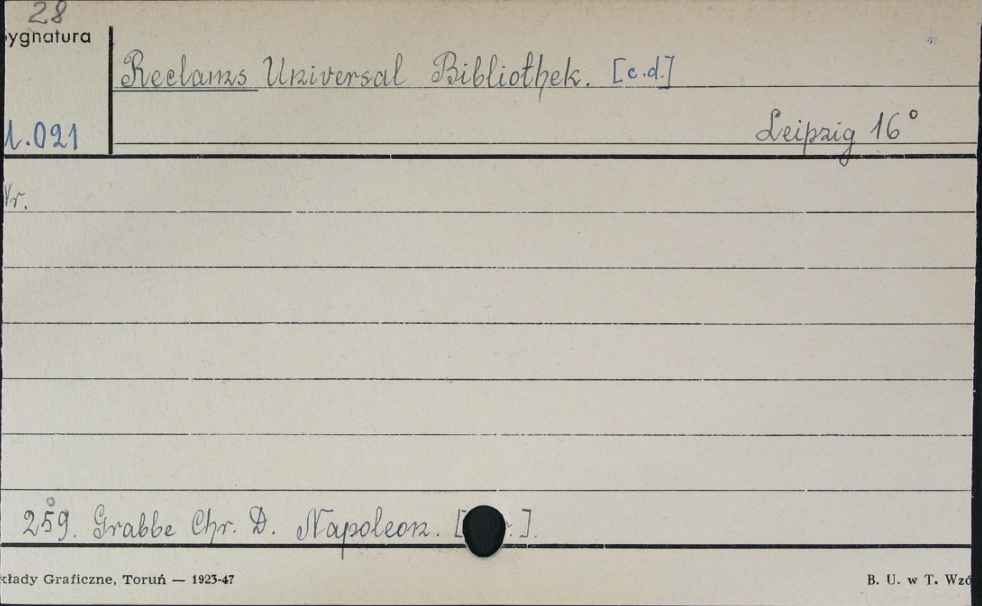 28
ygnatura
Reclams Universal Bibliothek. [c.d.]
1.021
Leipzig 16°
Nr.
259. Grabbe Chr. D. Napoleon. [ r.].
kłady Graficzne, Toruń — 1923-47
B. U. w T. Wzó